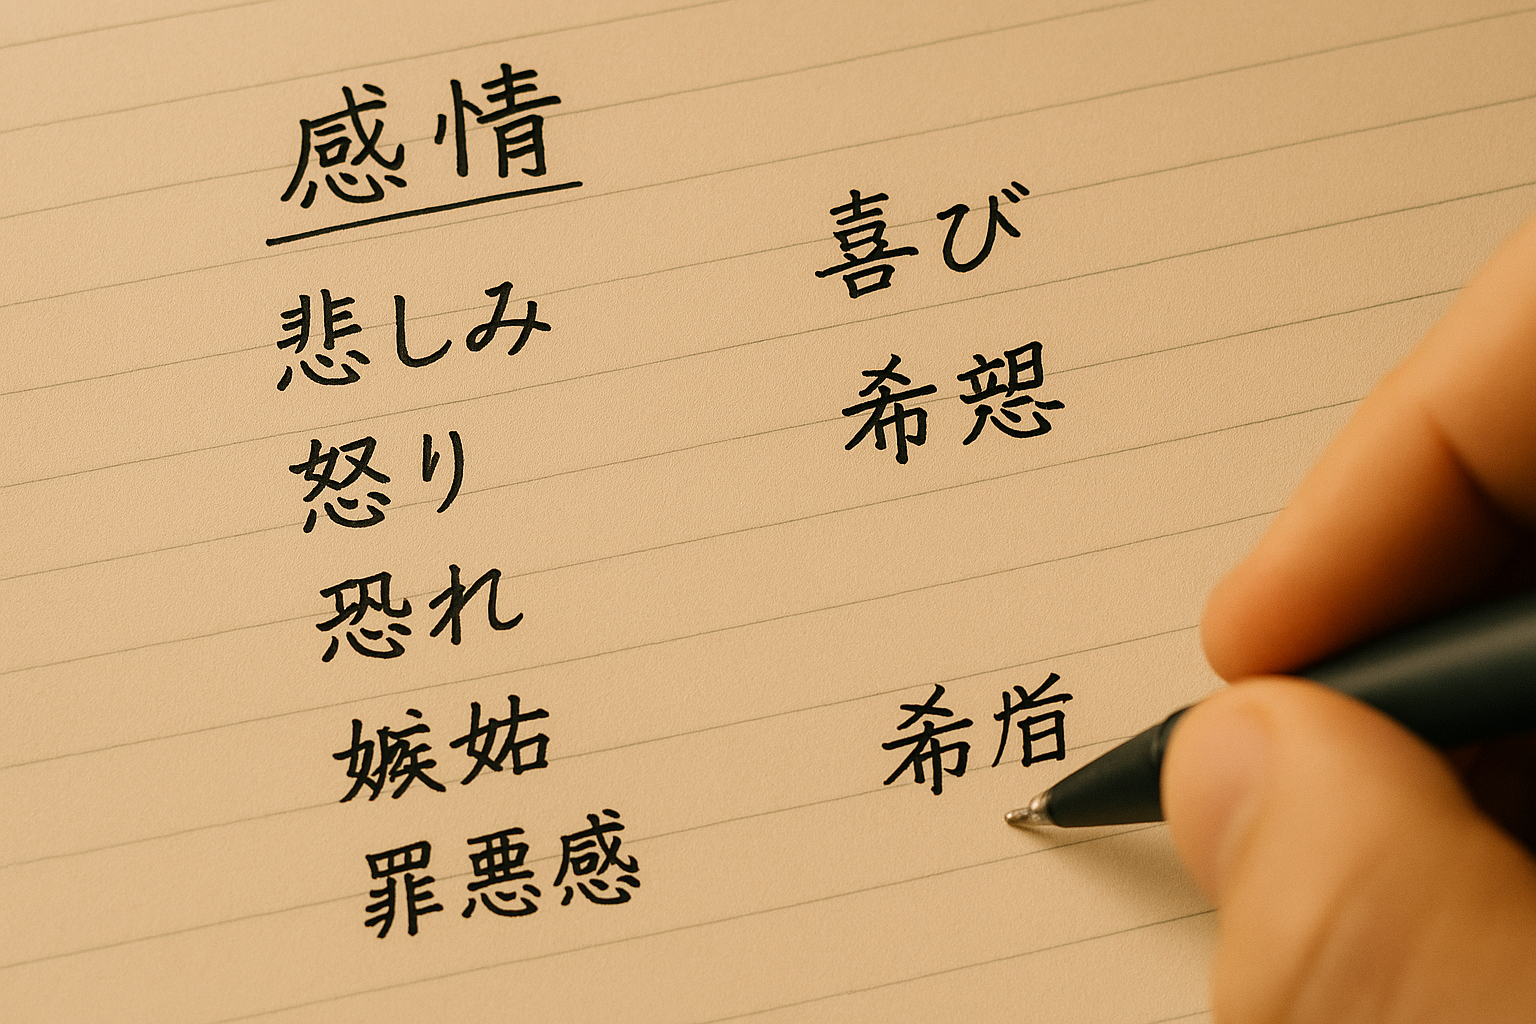 感情
悲しみ
怒り
恐れ
嫉妬
罪悪感
喜び
希
希